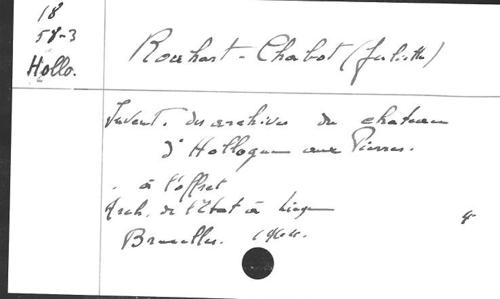 18
58-3
Hollo.
Rouhart-Chabot (Juliette)
Invent. des archives du chateau
d'Hollogne aux Pierres.
à l'offset
Arch. de l'Etat à Liège
Bruxelles.